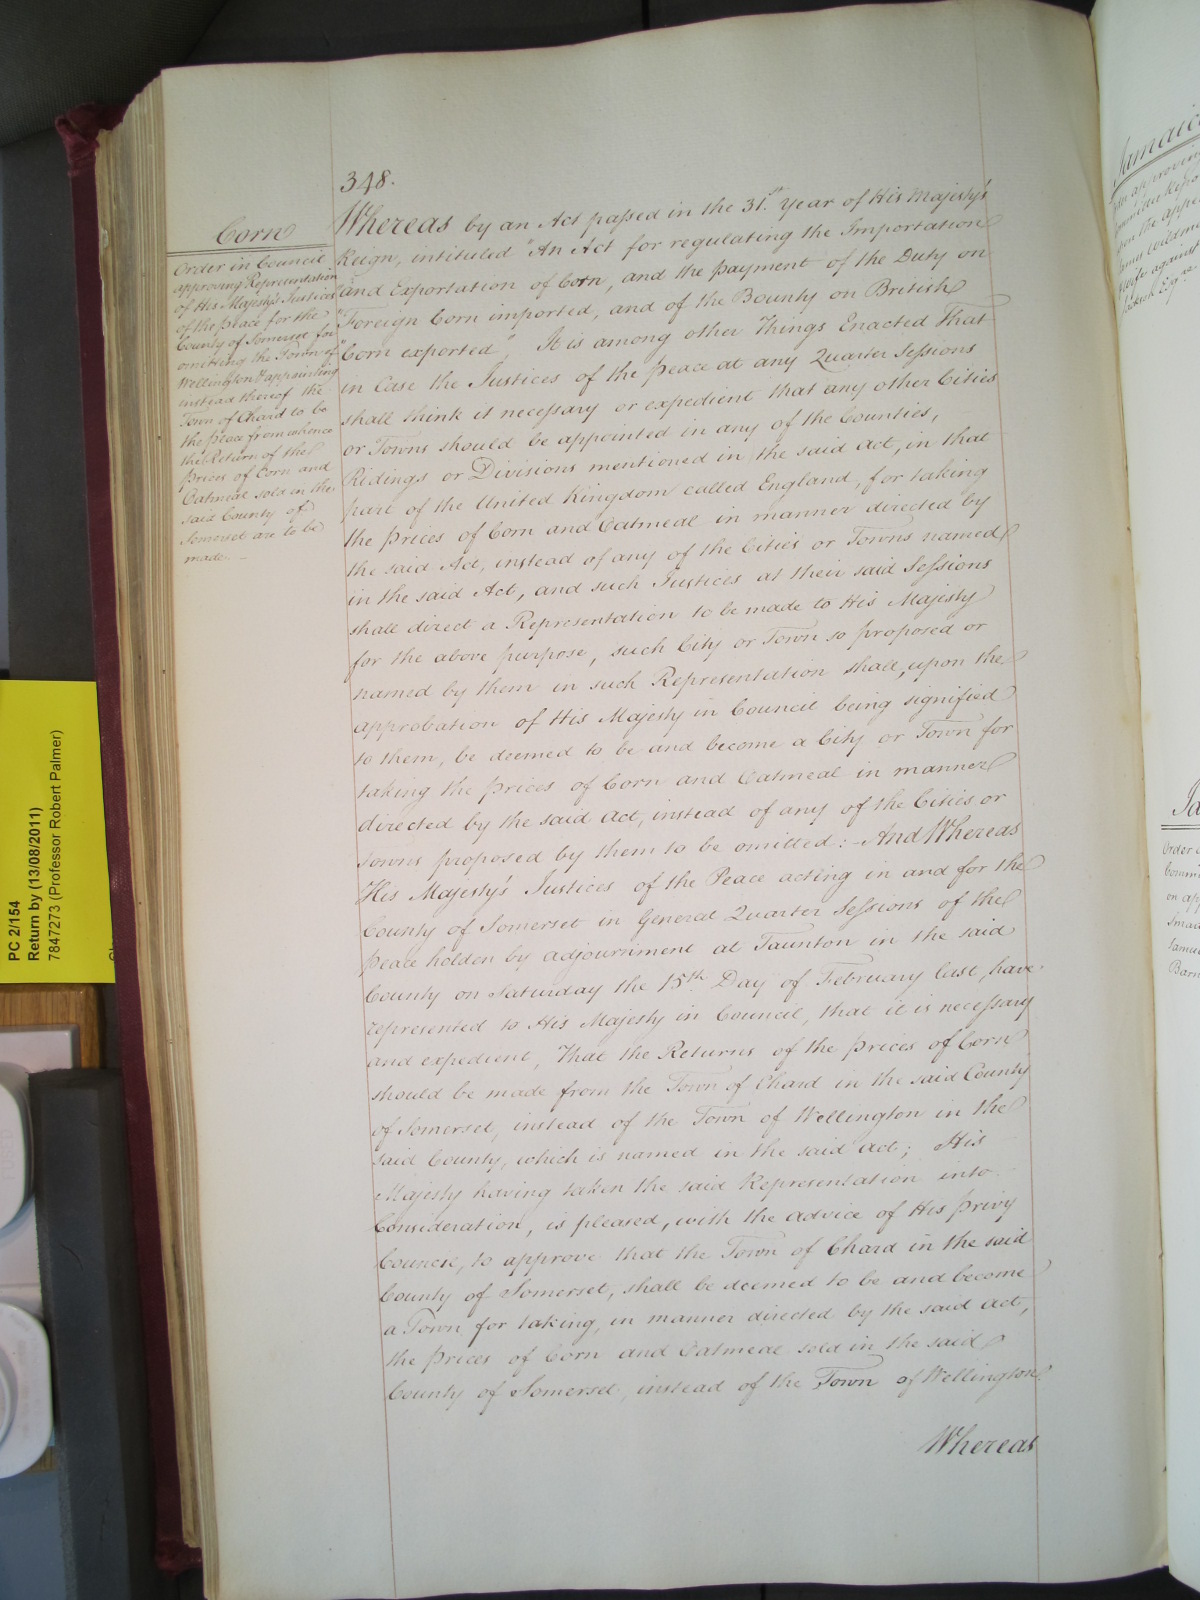 348.
Corn
Order in Council
approving Representation
of His Majesty's Justices
of the Peace for the
County of Somerset for
omitting the Town of
Wellington & appointing
instead thereof the
Town of Chard to be
the place from whence
the Return of the
Prices of Corn and
Oatmeal sold in the
said County of
Somerset are to be
made. —
Whereas by an Act passed in the 31st. Year of His Majesty's
Reign, intituled "An Act for regulating the Importation
"and Exportation of Corn, and the payment of the Duty on
"Foreign Corn imported, and of the Bounty on British
"Corn exported", It is among other Things Enacted That
in Case the Justices of the Peace at any Quarter Sessions
shall think it necessary or expedient that any other Cities
or Towns should be appointed in any of the Counties,
Ridings or Divisions mentioned in the said Act, in that
part of the United Kingdom called England, for taking
the Prices of Corn and Oatmeal in manner directed by
the said Act, instead of any of the Cities or Towns named
in the said Act, and such Justices at their said Sessions
shall direct a Representation to be made to His Majesty
for the above purpose, such City or Town so proposed or
named by them in such Representation shall, upon the
approbation of His Majesty in Council being signified
to them, be deemed to be and become a City or Town for
taking the Prices of Corn and Oatmeal in manner
directed by the said Act, instead of any of the Cities or
Towns proposed by them to be omitted: - And Whereas
His Majesty's Justices of the Peace acting in and for the
County of Somerset in General Quarter Sessions of the
Peace holden by adjournment at Taunton in the said
County on Saturday the 15th. Day of February last, have
represented to His Majesty in Council, that it is necessary
and expedient, That the Returns of the Prices of Corn
should be made from the Town of Chard in the said County
of Somerset, instead of the Town of Wellington in the
said County, which is named in the said Act; His
Majesty having taken the said Representation into
Consideration, is pleased, with the advice of His Privy
Council, to approve that the Town of Chard in the said
County of Somerset, shall be deemed to be and become
a Town for taking, in manner directed by the said Act,
the Prices of Corn and Oatmeal sold in the said
County of Somerset, instead of the Town of Wellington
Whereas
PC 2/154
Return by (13/08/2011)
7847273 (Professor Robert Palmer)
Jamaica
approving
upon the
against
Order
on
Barn